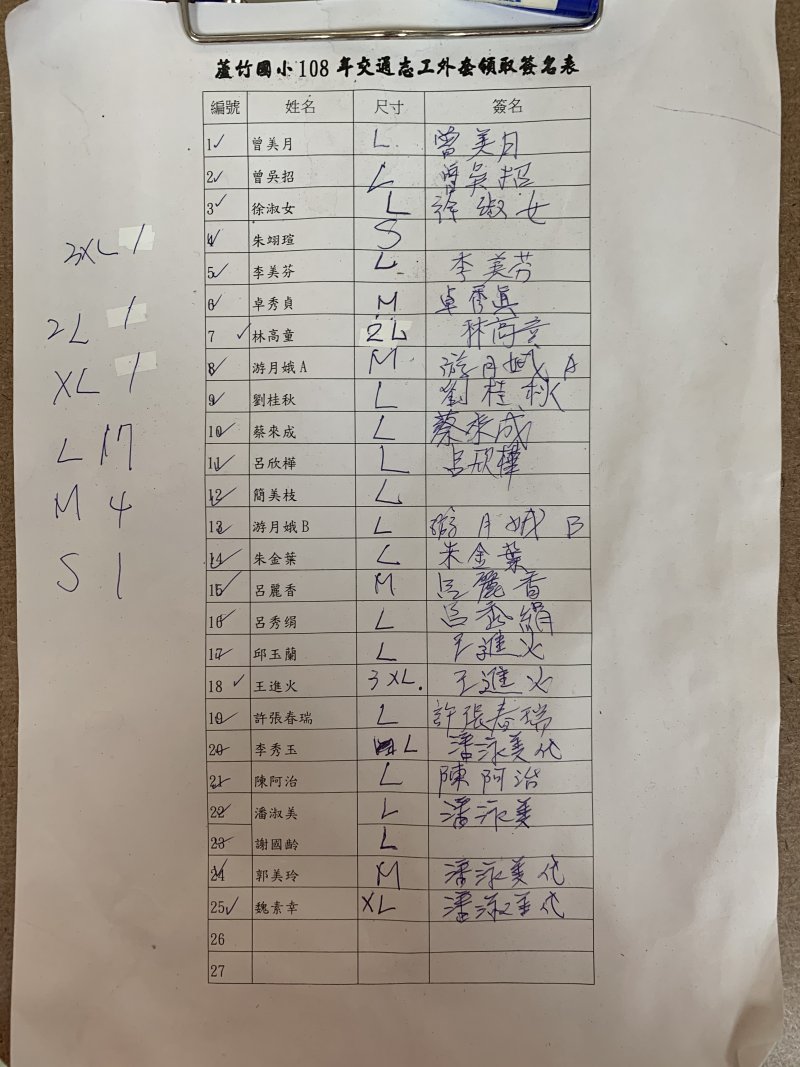 蘆竹國小108年交通志工外套領取簽名表
編號 姓名 尺寸 簽名
1 曾美月 L 曾美月
2 曾吳招 L 曾吳招
3 徐淑女 L 徐淑女
4 朱翊瑄 S
5 李美芬 L 李美芬
6 卓秀貞 M 卓秀真
7 林高童 2L 林高童
8 游月娥A M 游月娥 A
9 劉桂秋 L 劉桂秋
10 蔡來成 L 蔡來成
11 呂欣樺 L 呂欣樺
12 簡美枝 L
13 游月娥B L 游月娥 B
14 朱金葉 L 朱金葉
15 呂麗香 M 呂麗香
16 呂秀絹 L 呂秀絹
17 邱玉蘭 L 王進火
18 王進火 3XL. 王進火
19 許張春瑞 L 許張春瑞
20 李秀玉 L 潘淑美代
21 陳阿治 L 陳阿治
22 潘淑美 L 潘淑美
23 謝國齡 L
24 郭美玲 M 潘淑美代
25 魏素幸 XL 潘淑美代
26
27
3XL 1
2L 1
XL 1
L 17
M 4
S 1